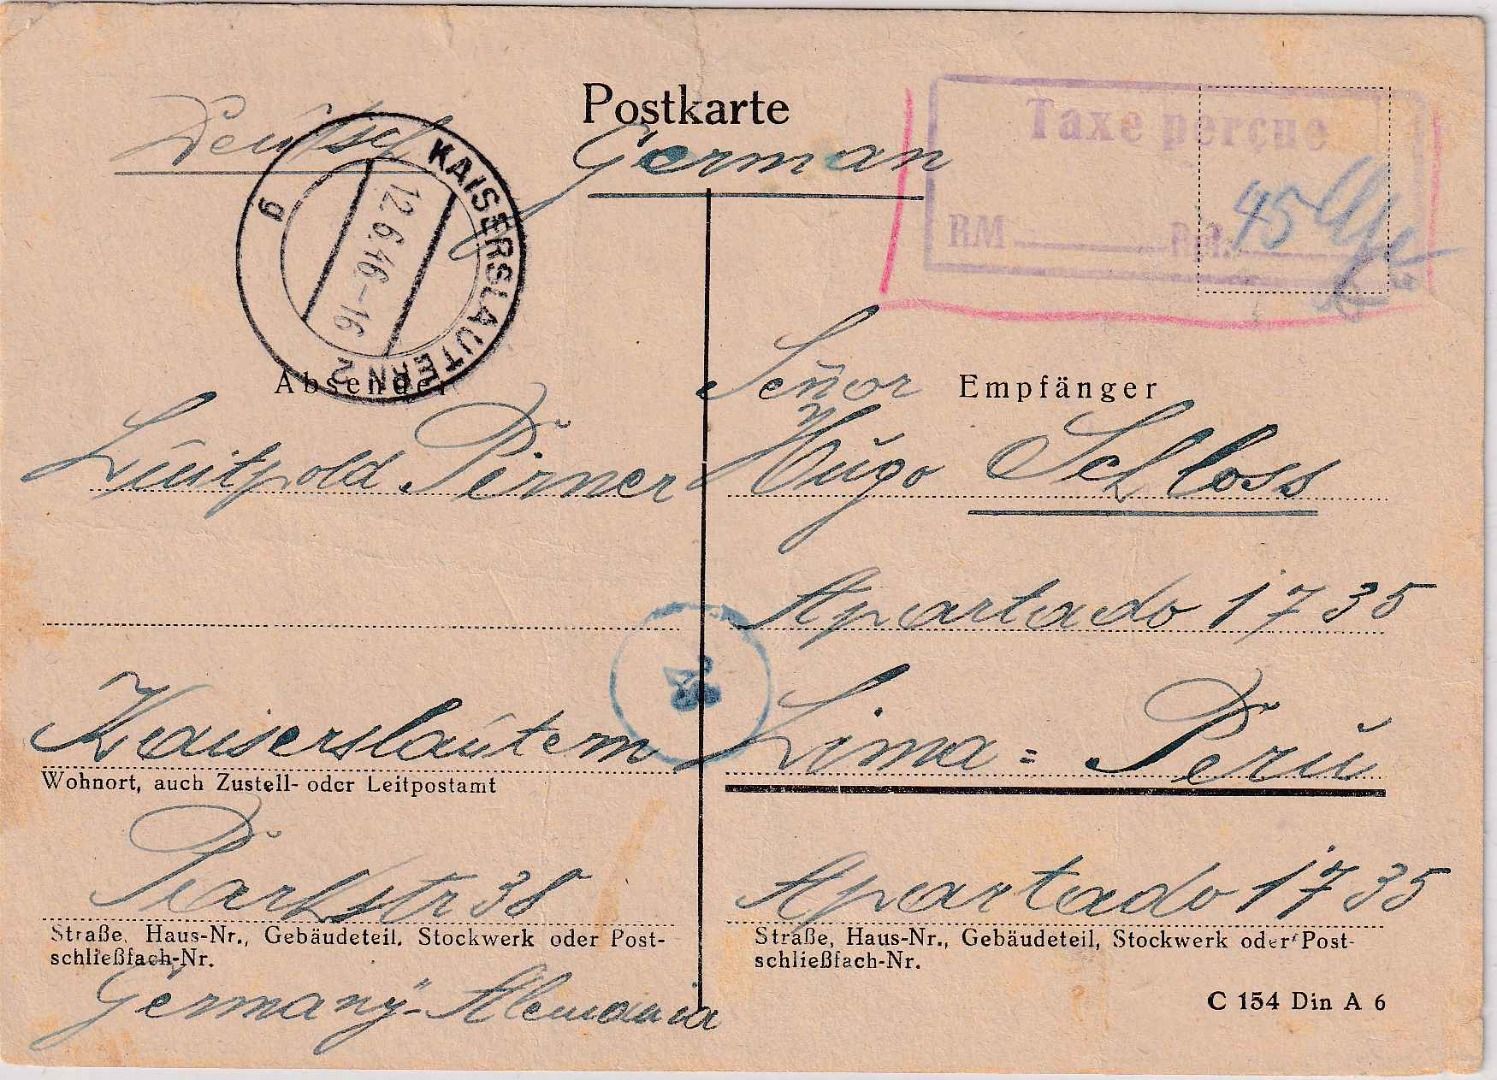 Postkarte
Deutsch
German
KAISERSLAUTERN 2
12.6.46-16
g
Taxe perçue
RM Rpf. 45
Absender
Luitpold Pirner
Kaiserslautern
Wohnort, auch Zustell- oder Leitpostamt
Parkstr 38
Straße, Haus-Nr., Gebäudeteil, Stockwerk oder Post-
schließfach-Nr.
Germany-Alemania
Empfänger
Señor
Hugo Schloss
Apartado 1735
Lima = Perú
Apartado 1735
Straße, Haus-Nr., Gebäudeteil, Stockwerk oder Post-
schließfach-Nr.
C 154 Din A 6